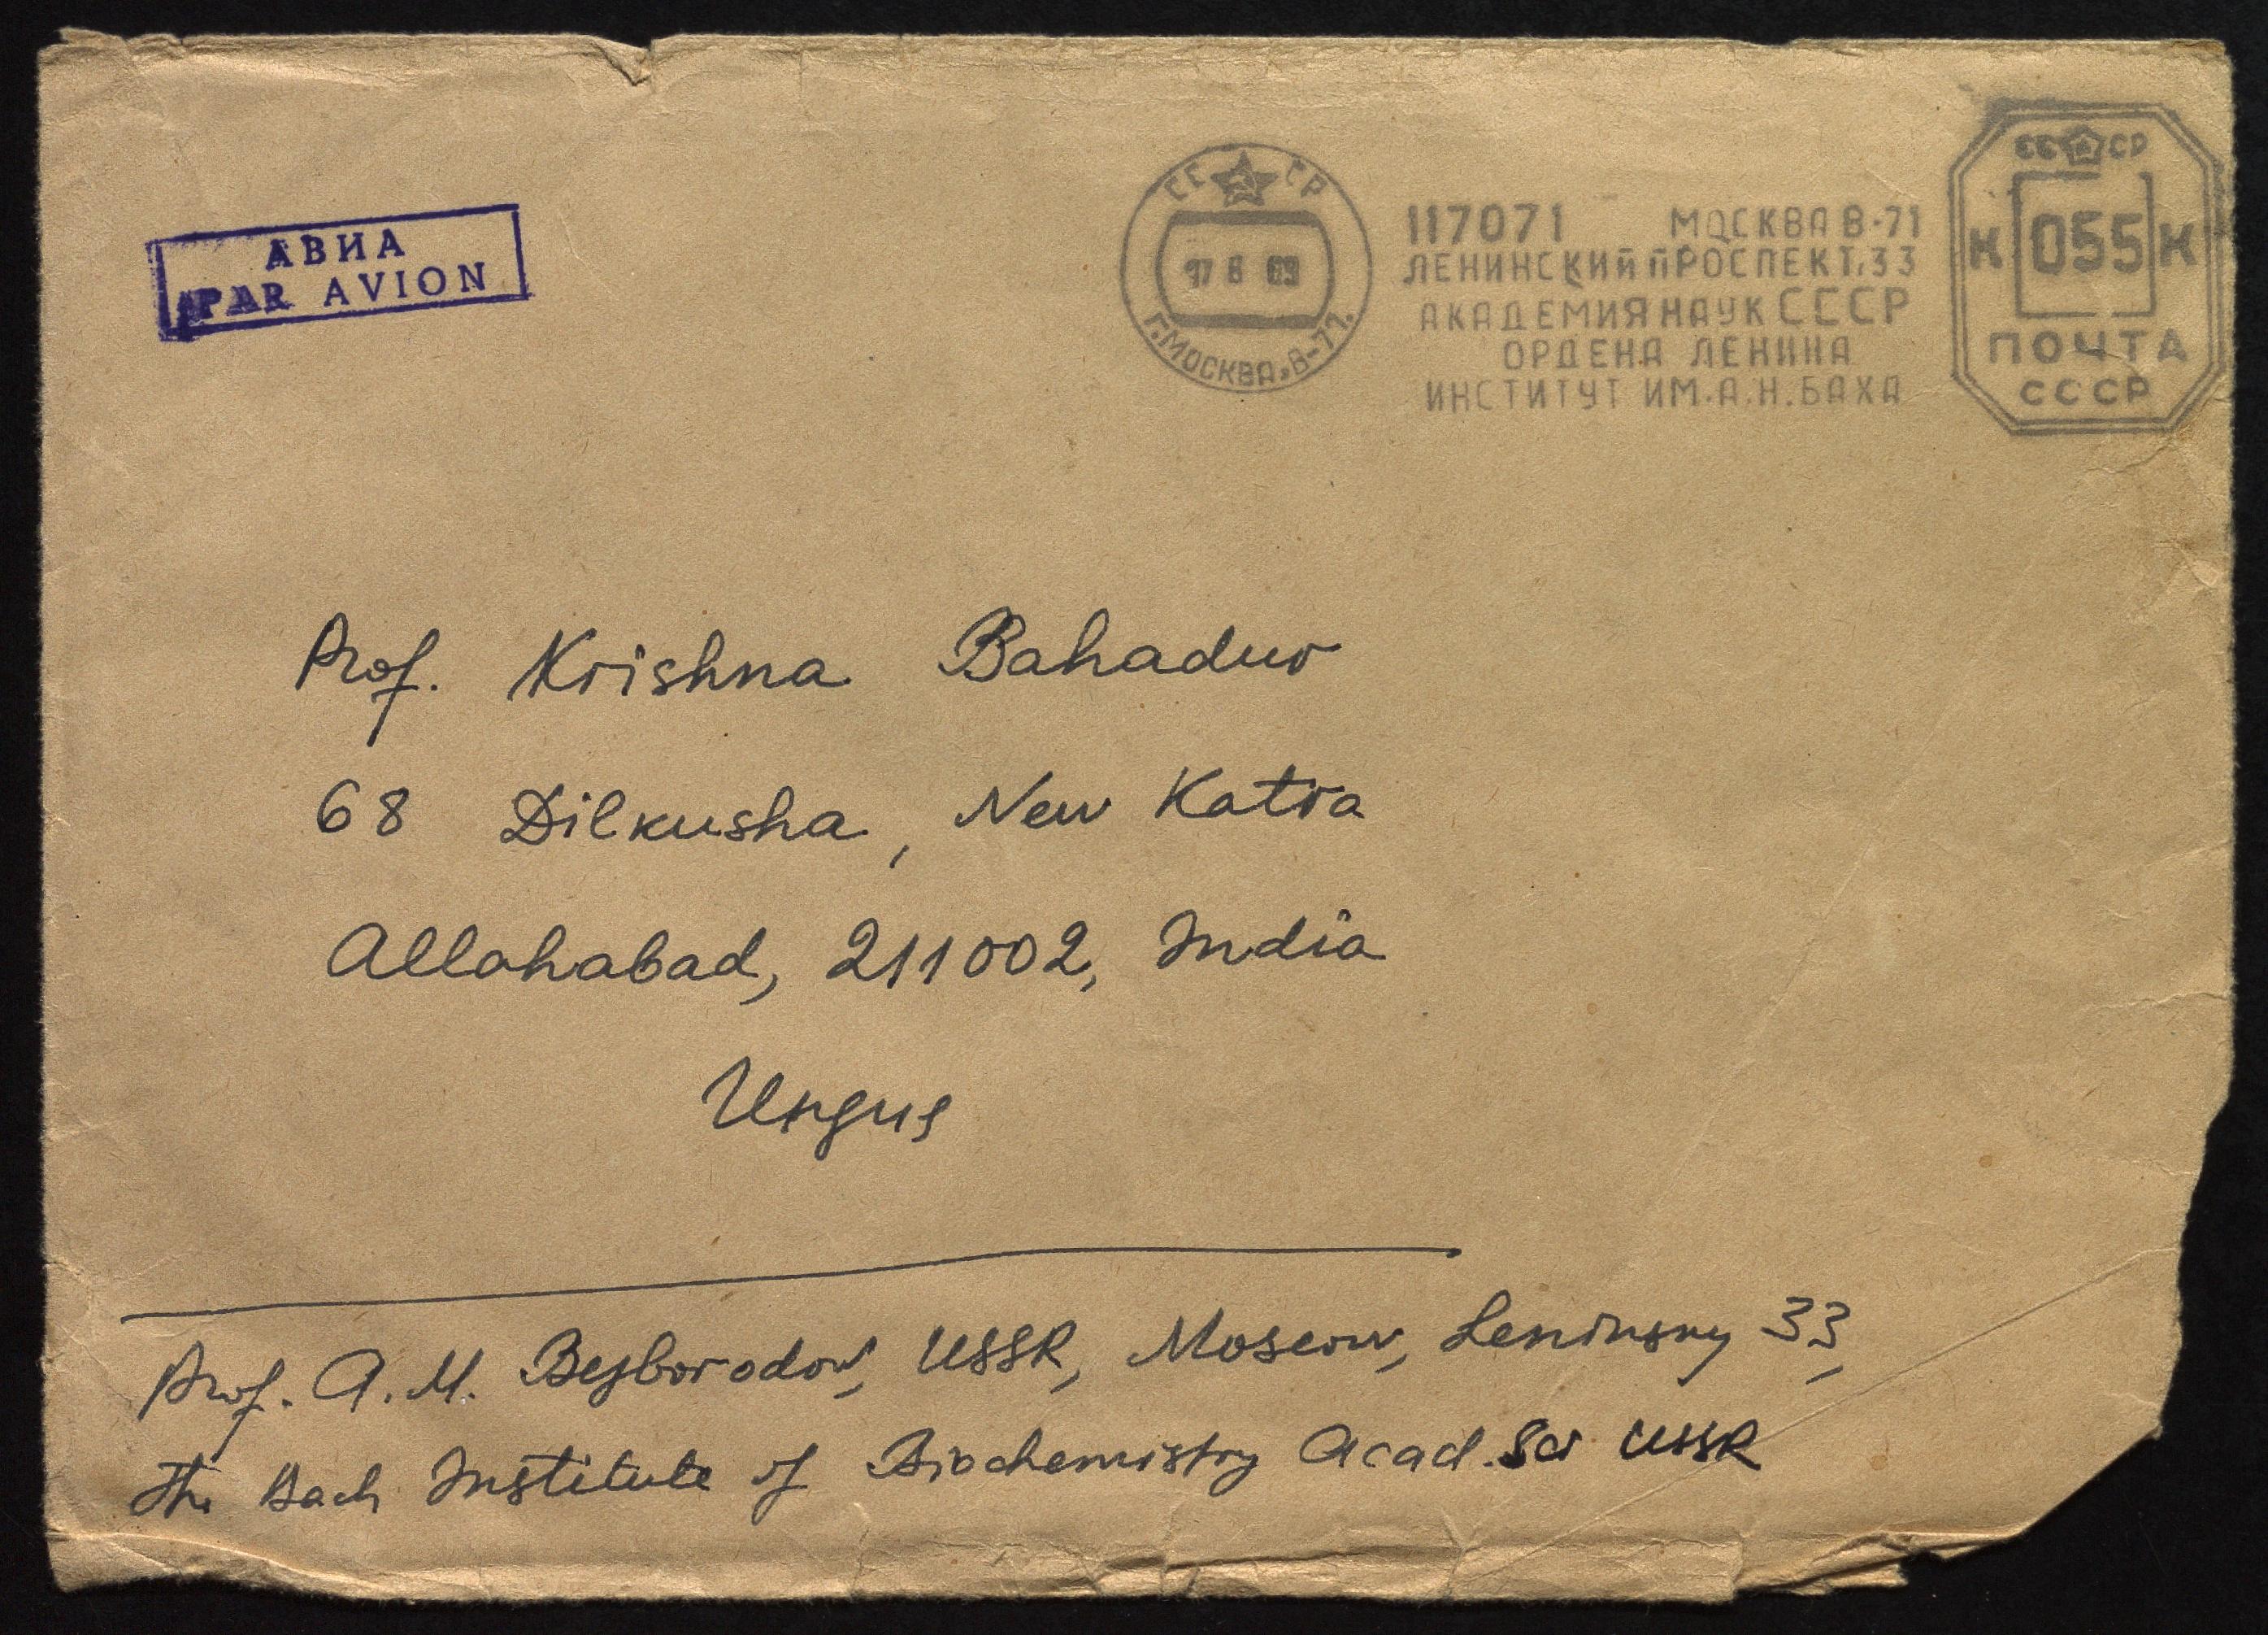 АВИА
PAR AVION
СССР
Г.МОСКВА В-71.
117071 МОСКВА В-71
ЛЕНИНСКИЙ ПРОСПЕКТ, 33
АКАДЕМИЯ НАУК СССР
ОРДЕНА ЛЕНИНА
ИНСТИТУТ ИМ.А.Н.БАХА
СССР
К 055 К
ПОЧТА
СССР
Prof. Krishna Bahadur
68 Dilkusha, New Katra
Allahabad, 211002, India
Индия
Prof. A.M. Bezborodov, USSR, Moscow, Leninsky 33,
The Bach Institute of Biochemistry Acad. Sci USSR